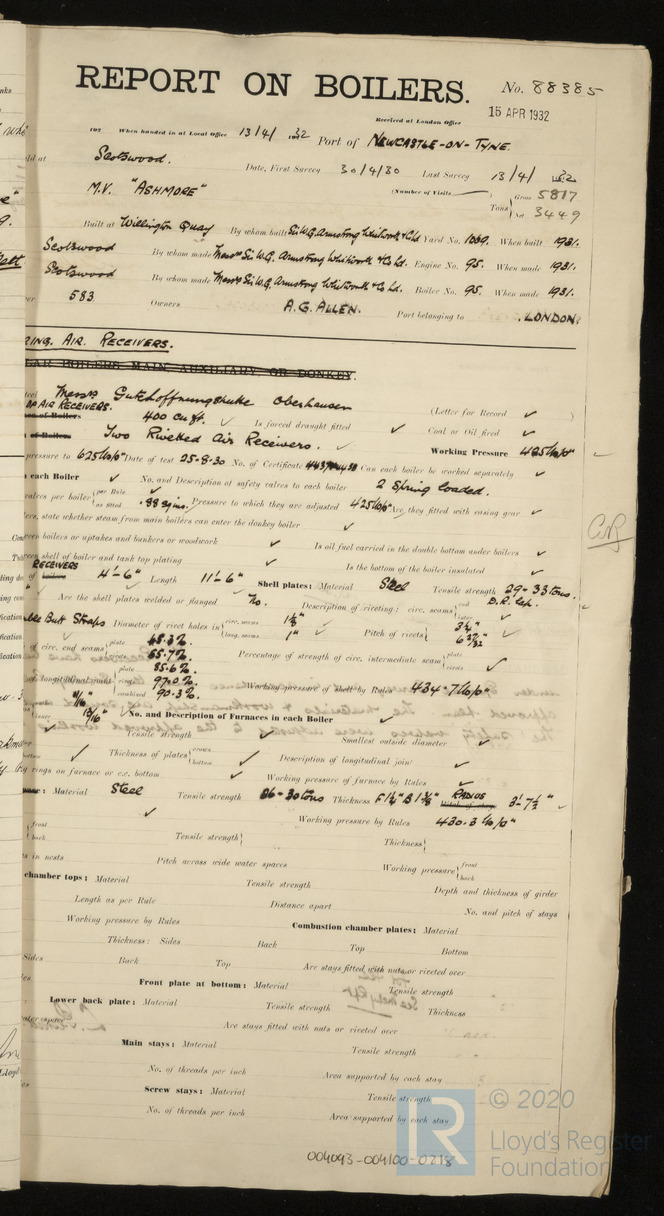 REPORT ON BOILERS.
No. 88385
15 APR 1932
Received at London Office
192 When handed in at Local Office 13/4/ 1932 Port of NEWCASTLE-ON-TYNE
Scotswood. Date, First Survey 30/4/30 Last Survey 13/4/ 1932
(Number of Visits
M.V. "ASHMORE" Tons { Gross 5817
Net 3449
Built at Willington Quay By whom built Sir W.G. Armstrong Whitworth & Co Ld Yard No. 1069. When built 1931.
Scotswood By whom made Messrs Sir W.G. Armstrong Whitworth & Co Ld. Engine No. 95. When made 1931.
Scotswood By whom made Messrs Sir W.G. Armstrong Whitworth & Co Ld. Boiler No. 95. When made 1931.
583 Owners A.G. ALLEN. Port belonging to LONDON.
RING. AIR RECEIVERS.
BOILERS MAIN AUXILIARY OR DONKEY.
Messrs Gutehoffnungshutte Oberhausen (Letter for Record ✓ )
OF AIR RECEIVERS. 400 cu ft. Is forced draught fitted ✓ Coal or Oil fired ✓
of Boilers Two Rivetted Air Receivers. Working Pressure 425 lb/□"
pressure to 625 lb/□" Date of test 25-8-30 No. of Certificate Can each boiler be worked separately ✓
each Boiler ✓ No. and Description of safety valves to each boiler 2 Spring loaded.
valves per boiler { per Rule ✓
as fitted .88 sq ins. Pressure to which they are adjusted 425 lb/□" Are they fitted with easing gear ✓
ers, state whether steam from main boilers can enter the donkey boiler ✓
een boilers or uptakes and bunkers or woodwork ✓ Is oil fuel carried in the double bottom under boilers ✓
een shell of boiler and tank top plating ✓ Is the bottom of the boiler insulated ✓
RECEIVERS
of boilers 4'-6" Length 11'-6" Shell plates: Material Steel Tensile strength 29-33 tons.
Are the shell plates welded or flanged No. Description of riveting: circ. seams { end D.R. Lap.
inter. ✓
ble Butt Straps Diameter of rivet holes in { circ. seams 1⅛"
long. seams 1" Pitch of rivets { 3¾"
6 29/32"
of circ. end seams { plate 68.3%
rivets 65.7% Percentage of strength of circ. intermediate seam { plate
rivets ✓
of longitudinal joint { plate 85.6%
rivets 97.0%
combined 90.3% Working pressure of shell by Rules 434.7 lb/□"
11/16"
13/16" No. and Description of Furnaces in each Boiler ✓
Tensile strength ✓ Smallest outside diameter ✓
bottom ✓ Thickness of plates { crown
bottom ✓ Description of longitudinal joint ✓
rings on furnace or c.c. bottom ✓ Working pressure of furnace by Rules ✓
Material Steel Tensile strength 26-30 tons Thickness F 1¼" B 1⅜" RADIUS Pitch of stays 3'-7½"
Working pressure by Rules 430.3 lb/□"
{ front
back Tensile strength Thickness
s in nests Pitch across wide water spaces Working pressure { front
back
chamber tops: Material Tensile strength Depth and thickness of girder
Length as per Rule Distance apart No. and pitch of stays
Working pressure by Rules Combustion chamber plates: Material
Thickness: Sides Back Top Bottom
Sides Back Top Are stays fitted with nuts or riveted over
Front plate at bottom: Material Tensile strength
Lower back plate: Material Tensile strength Thickness
Are stays fitted with nuts or riveted over
Main stays: Material Tensile strength
No. of threads per inch Area supported by each stay
Screw stays: Material Tensile strength
No. of threads per inch Area supported by each stay
004093-004100-0218
LR © 2020
Lloyd's Register
Foundation